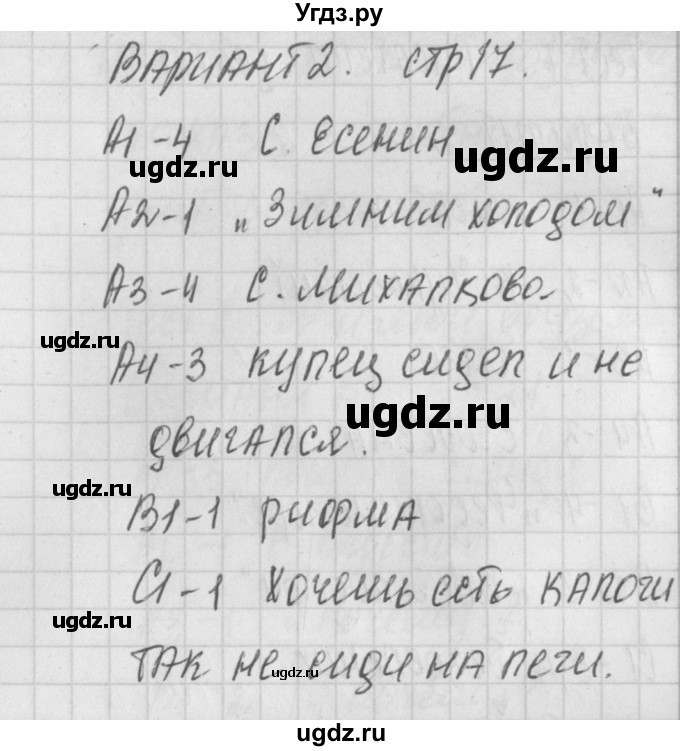 Угдз.ру
Вариант 2. стр 17.
А1-4 С. Есенин
ugdz.ru
ugdz.ru
А2-1 „Зимним холодом"
А3-4 С. Михалково-
ugdz.ru
А4-3 купец сидел и не
ugdz.ru
двигался.
ugdz.ru
В1-1 рифма
С1-1 Хочешь есть калачи
ugdz.ru
так не сиди на печи.
ugdz.ru
ugdz.ru